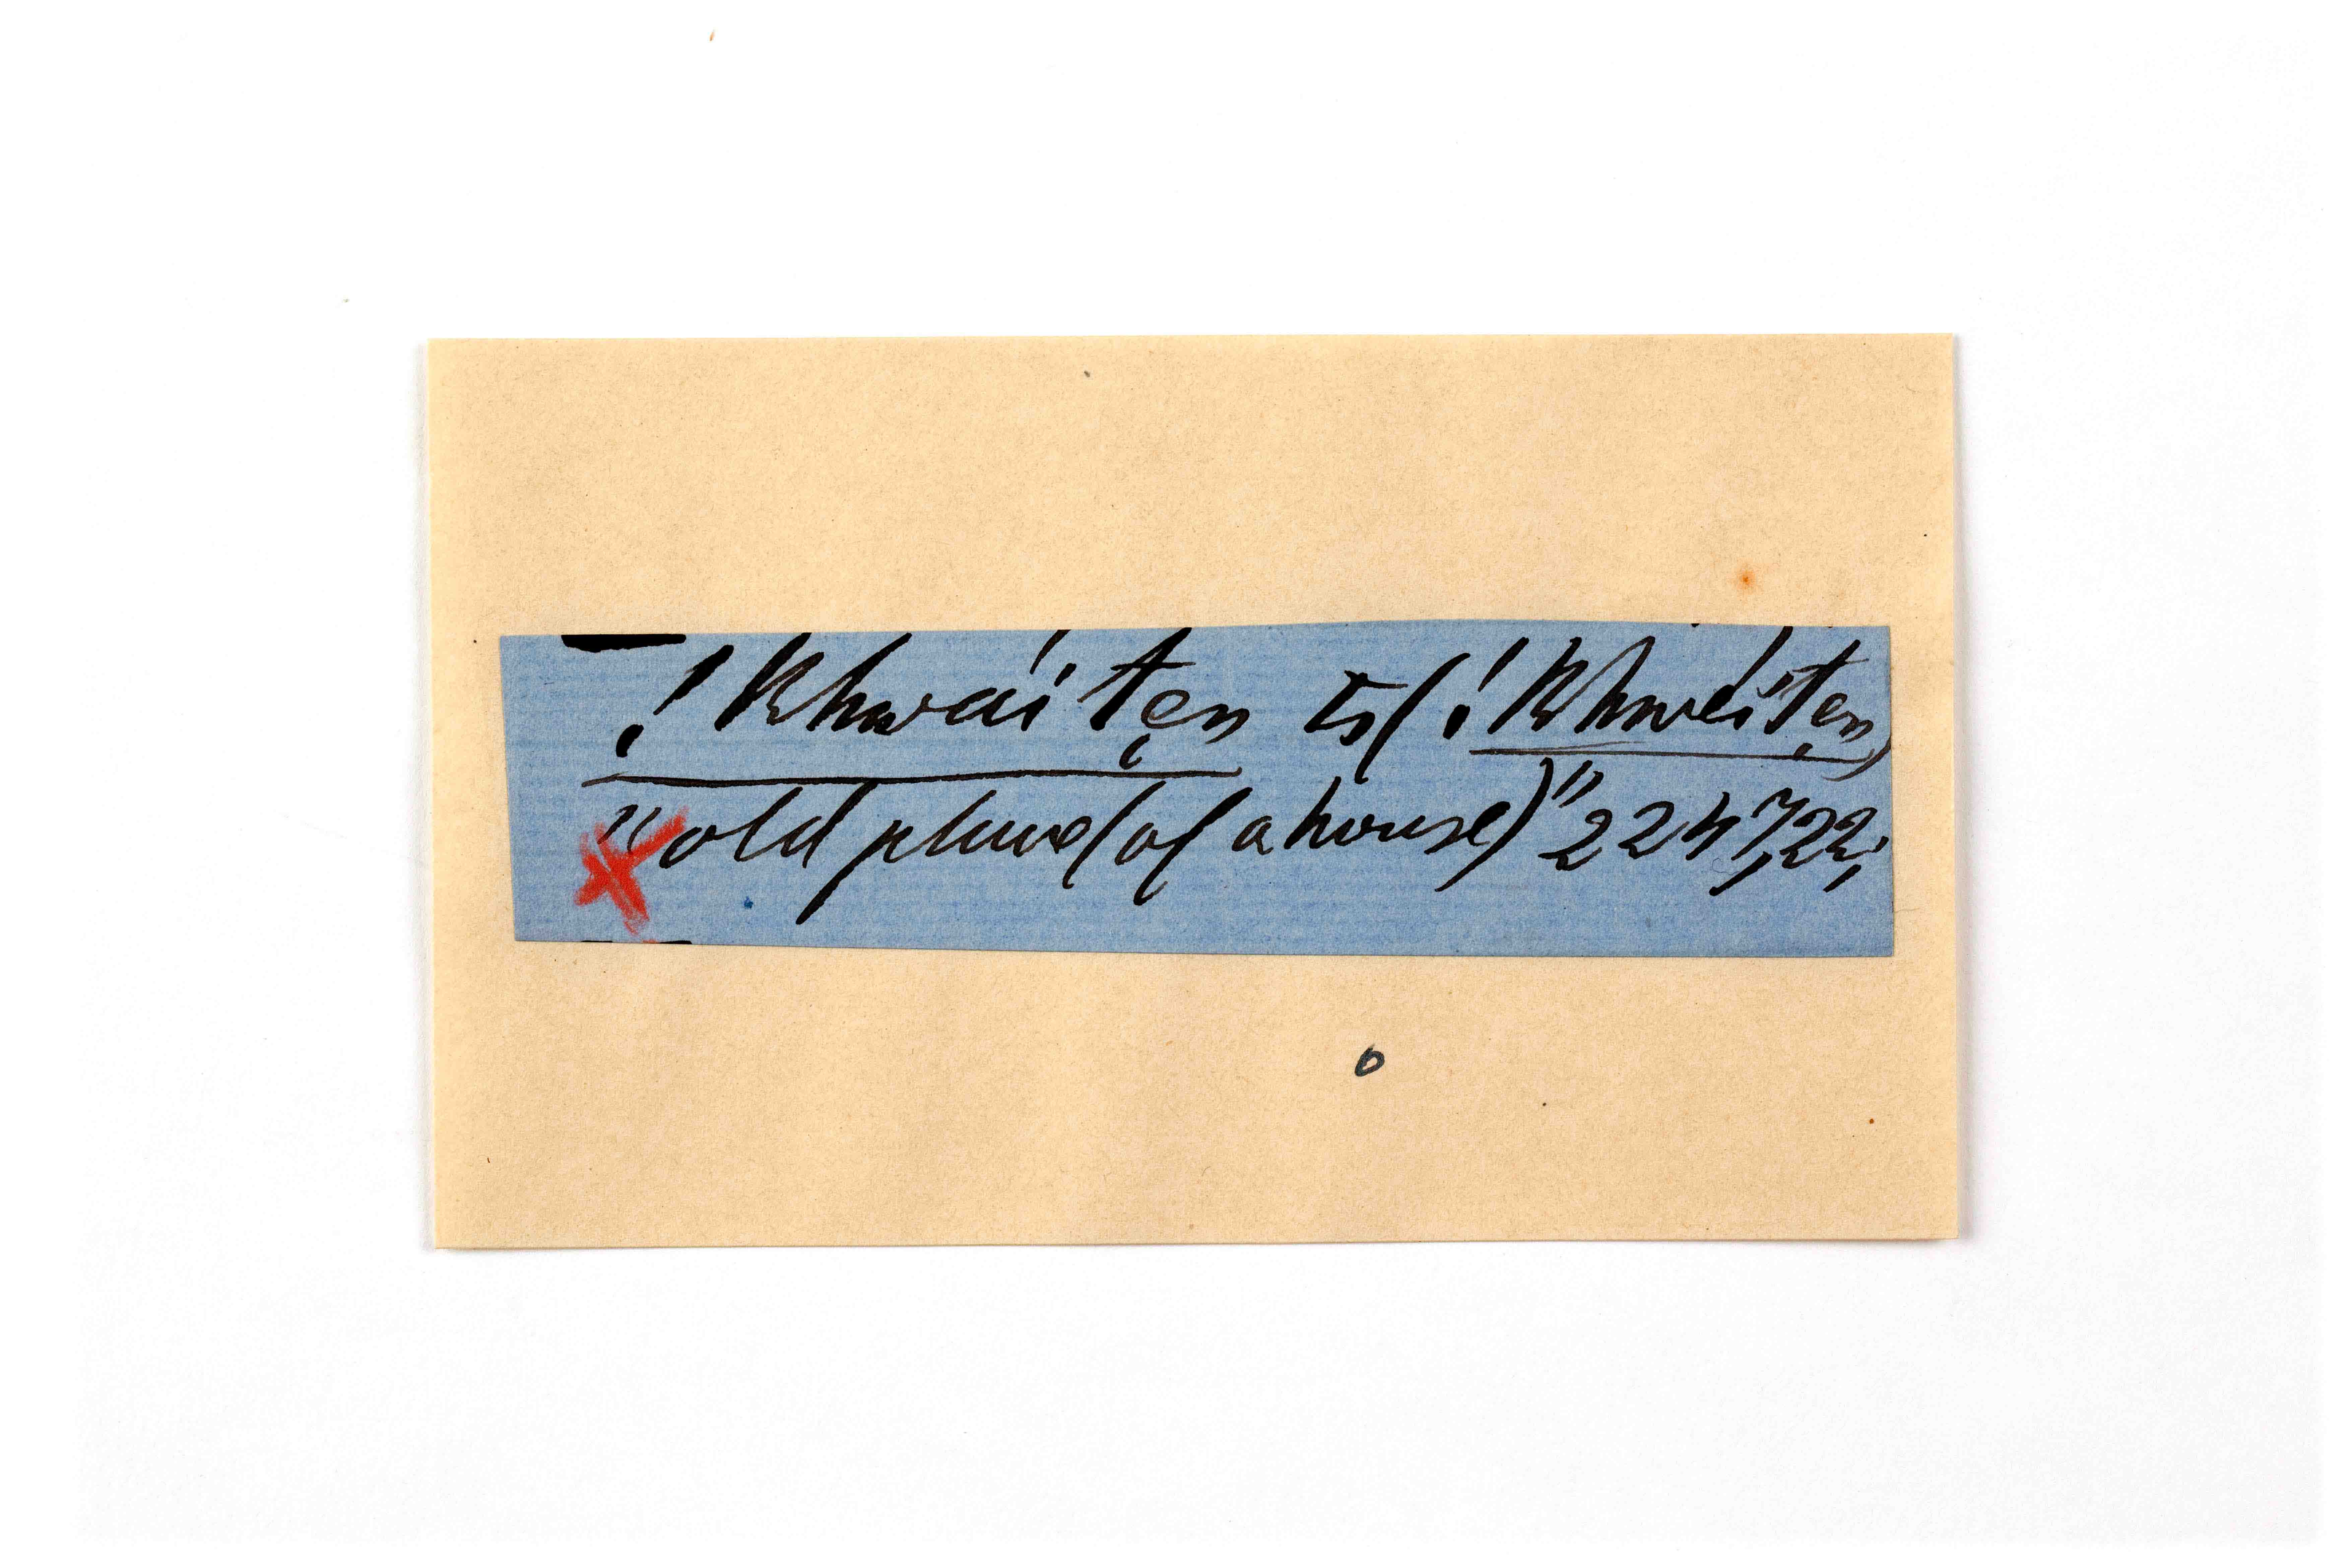 !Khwāi tẹn ts (!Khwéitẹn)
"old place (of a house)" 2247,22;
o